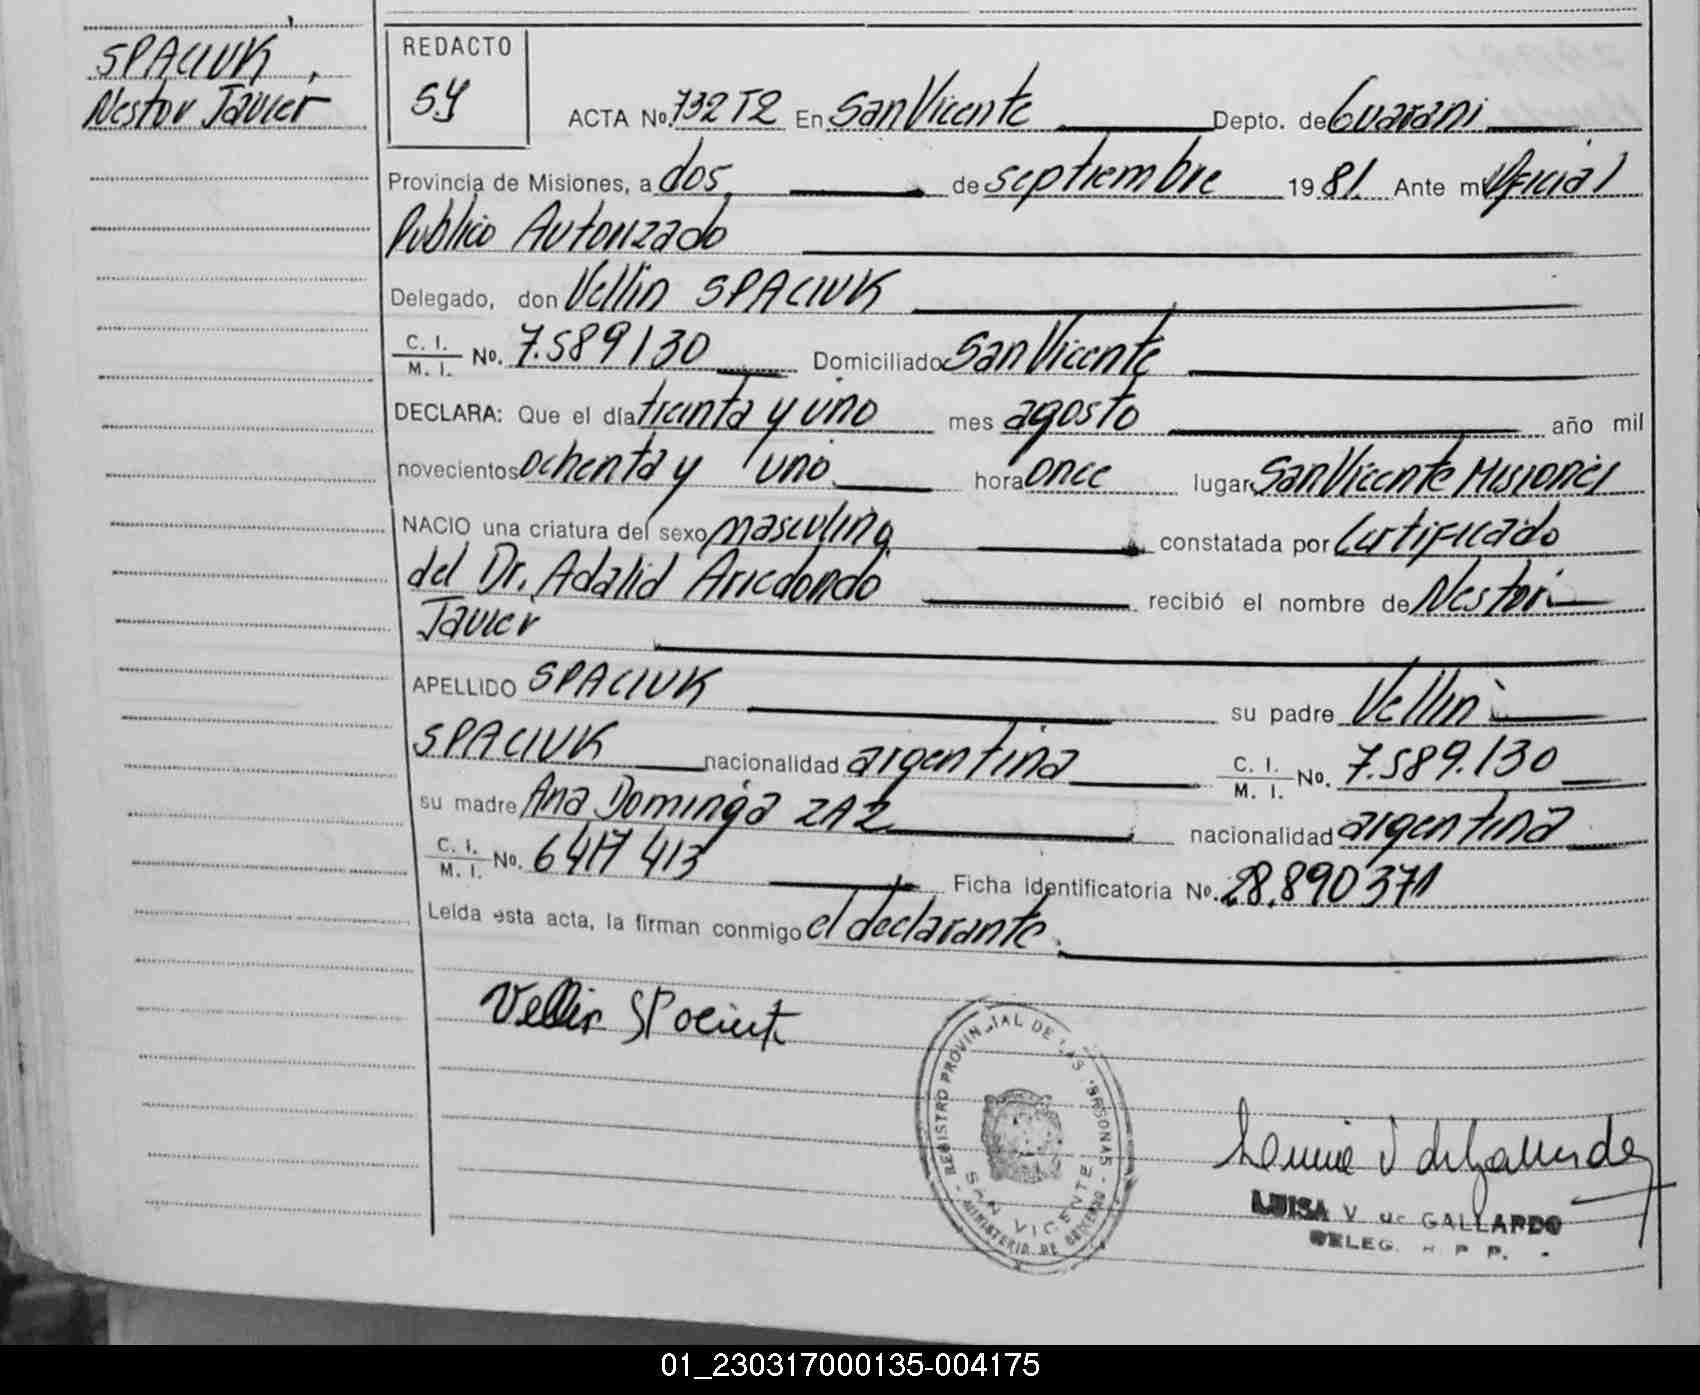 SPACIUK,
Nestor Javier
REDACTO
SY
ACTA No. 732 T2 En San Vicente Depto. de Guarani
Provincia de Misiones, a dos de septiembre 1981. Ante mi Oficial
Publico Autorizado
Delegado, don Vellin SPACIUK
C. I. / M. I. No. 7.589130 Domiciliado San Vicente
DECLARA: Que el día treinta y uno mes agosto año mil
novecientos ochenta y uno hora once lugar San Vicente Misiones
NACIO una criatura del sexo masculino constatada por Certificado
del Dr. Adalid Arredondo recibió el nombre de Nestor
Javier
APELLIDO SPACIUK su padre Vellin
SPACIUK nacionalidad argentina C. I. / M. I. No. 7.589.130
su madre Ana Dominga ZAZ nacionalidad argentina
C. I. / M. I. No. 6417413 Ficha Identificatoria No. 28.890371
Leída esta acta, la firman conmigo el declarante.
Vellin
REGISTRO PROVINCIAL DE LAS PERSONAS - MINISTERIO DE GOBIERNO -
SAN VICENTE
LUISA V de GALLARDO
DELEG. R P P.
01_230317000135-004175